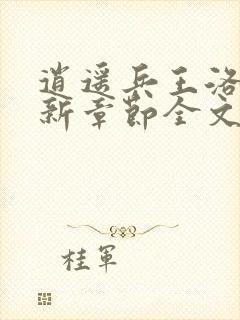 逍遥兵王洛
新章节全文
桂軍